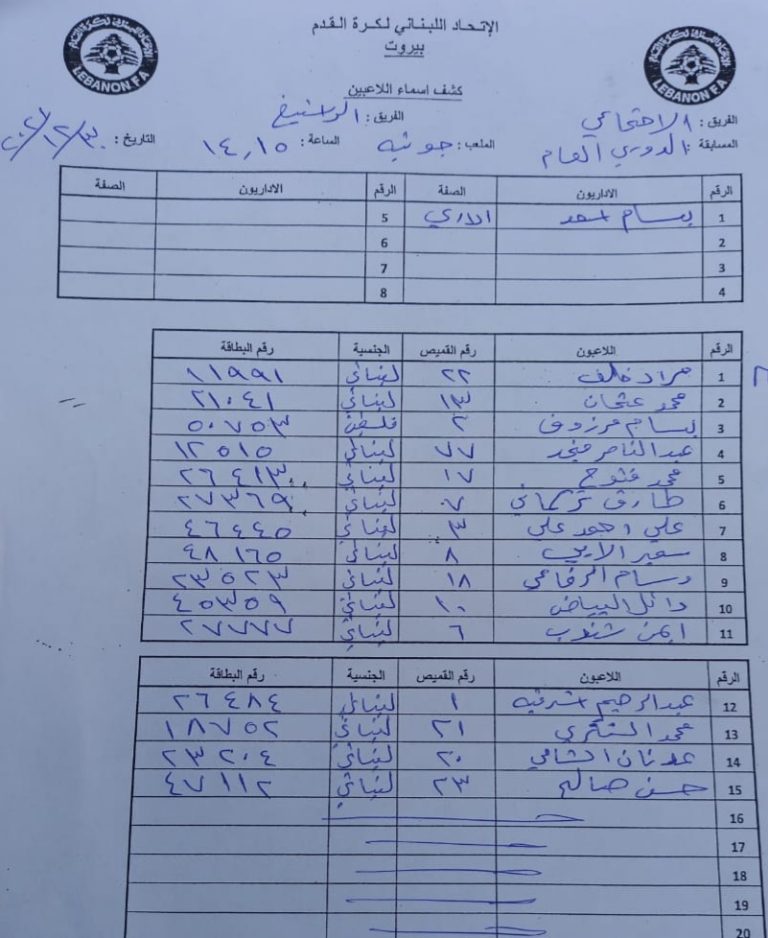 الإتحاد اللبناني لكرة القدم
بيروت
LEBANON F.A
LEBANON F.A
كشف اسماء اللاعبين
الفريق: الاجتماعي الفريق: الراسينغ
المسابقة: الدوري العام الملعب: جونيه الساعة: ١٤,١٥ التاريخ:
الرقم الاداريون الصفة الرقم الاداريون الصفة
1 بسام اسعد الاداري 5
2 6
3 7
4 8
الرقم اللاعبون رقم القميص الجنسية رقم البطاقة
1 مراد خلف ٢٢ لبناني ١١٩٩١
2 محمد عثمان ١٣ لبناني ٢١٠٤١
3 بسام مرزوق ٢ فلسطين ٥٠٧٥٣
4 عبد الناصر ٧٧ لبناني ١٢٥١٥
5 محمد فتوح ١٧ لبناني ٢٦٤١٣
6 طارق تركماني ٧ لبناني ٢٧٣٦٩
7 علي علي ٣ لبناني ٤٦٤٤٥
8 سمير الايبي ٨ لبناني ٤٨١٦٥
9 وسام الرفاعي ١٨ لبناني ٢٣٥٢٣
10 وائل البياض ١٠ لبناني ٤٥٣٥٩
11 ايمن شنوب ٦ لبناني ٢٧٧٧٧
الرقم اللاعبون رقم القميص الجنسية رقم البطاقة
12 عبد الرحيم ١ لبناني ٢٦٤٨٤
13 محمد ٢١ لبناني ١٨٧٥٢
14 عدنان الشامي ٢٠ لبناني ٢٣٢٠٤
15 حسن صالح ٢٣ لبناني ٤٧١١٢
16
17
18
19
20